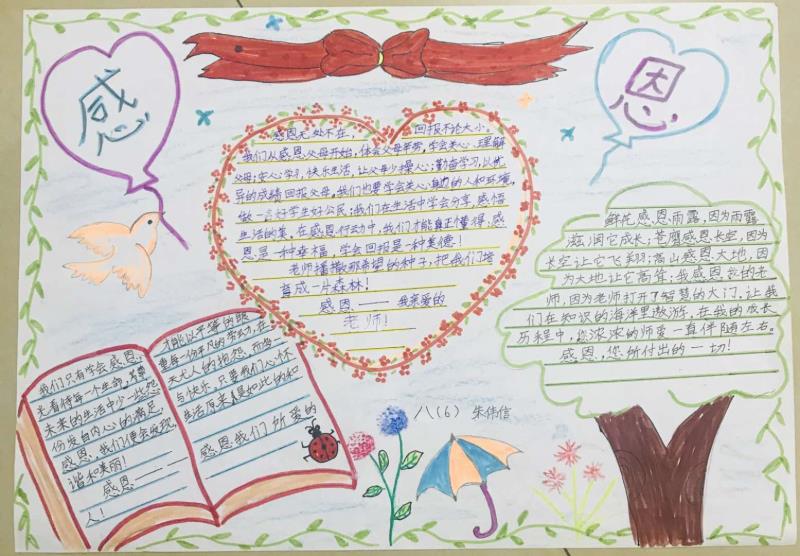 感
恩
感恩无处不在，回报不论大小。
我们从感恩父母开始，体会父母辛劳，学会关心、理解
父母；安心学习，快乐生活，让父母少操心；勤奋学习，以优
异的成绩回报父母。我们也要学会关心身边的人和环境，
做一言好学生好公民；我们在生活中学会分享，感悟
生活的美，在感恩行动中，我们才能真正懂得：感
恩是一种幸福，学会回报是一种美德！
老师播撒那希望的种子，把我们培
育成一片森林！
感恩——我亲爱的
老师！
鲜花感恩雨露，因为雨露
滋润它成长；苍鹰感恩长空，因为
长空让它飞翔；高山感恩大地，因
为大地让它高耸；我感恩我的老
师，因为老师打开了智慧的大门，让我
们在知识的海洋里遨游，在我的成长
历程中，您浓浓的师爱一直伴随左右。
感恩，您所付出的一切！
我们只有学会感恩，
才能以平等的眼
光看待每一个生命，尊
重每一份平凡的劳动，在
未来的生活中少一些怨
天尤人的抱怨，而多一
份发自内心的满足
与快乐。只要我们心怀
感恩，我们便会发现，
生活原来是如此的和
谐和美丽！
感恩——
感恩我们所爱的
人！
八（6） 朱伟信